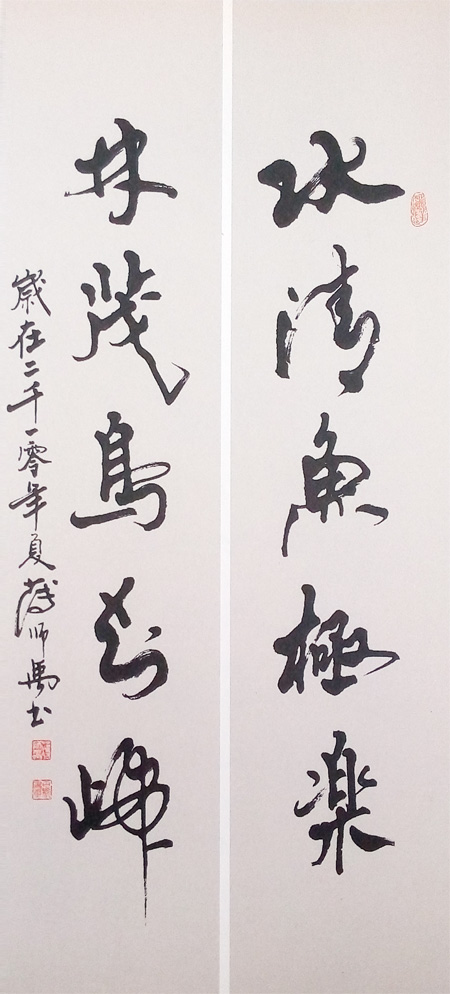 水清魚極樂
林茂鳥知歸
歲在二千一零年夏 师禹书